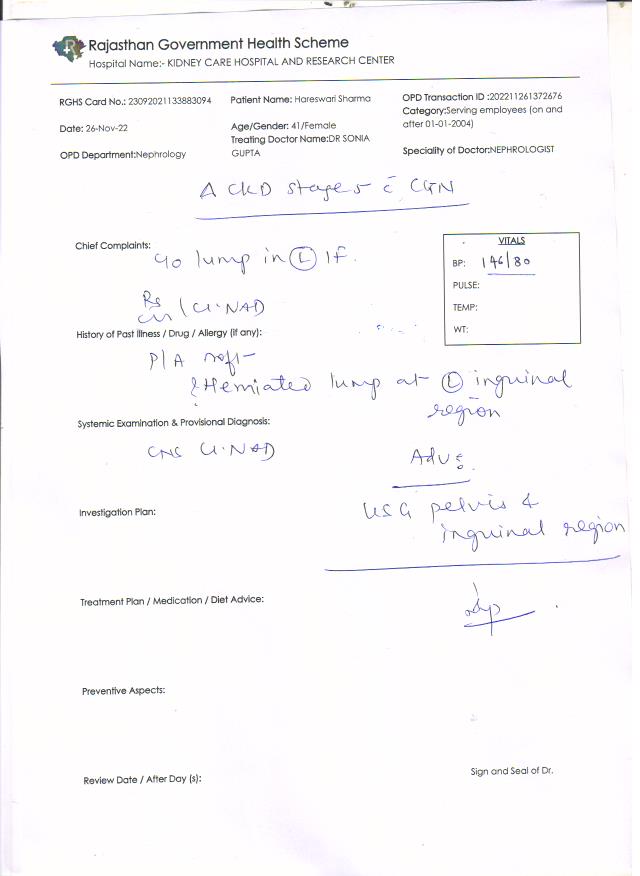 Rajasthan Government Health Scheme
Hospital Name:- KIDNEY CARE HOSPITAL AND RESEARCH CENTER
RGHS Card No.: 23092021133883094
Patient Name: Hareswari Sharma
OPD Transaction ID :202211261372676
Category:Serving employees (on and
after 01-01-2004)
Date: 26-Nov-22
Age/Gender: 41/Female
Treating Doctor Name:DR SONIA
GUPTA
OPD Department:Nephrology
Speciality of Doctor:NEPHROLOGIST
A CKD stage 5 c̄ CGN
Chief Complaints:
c/o lump in Ⓛ IF.
VITALS
BP: 146/80
PULSE:
TEMP:
WT:
Rs
CVS / Cl. NAD
History of Past Illness / Drug / Allergy (if any):
P/A soft
Herniated lump at Ⓛ inguinal
region
Systemic Examination & Provisional Diagnosis:
CNS Cl. NAD
Adv:
Investigation Plan:
USG pelvis &
inguinal region
Treatment Plan / Medication / Diet Advice:
Preventive Aspects:
Review Date / After Day (s):
Sign and Seal of Dr.